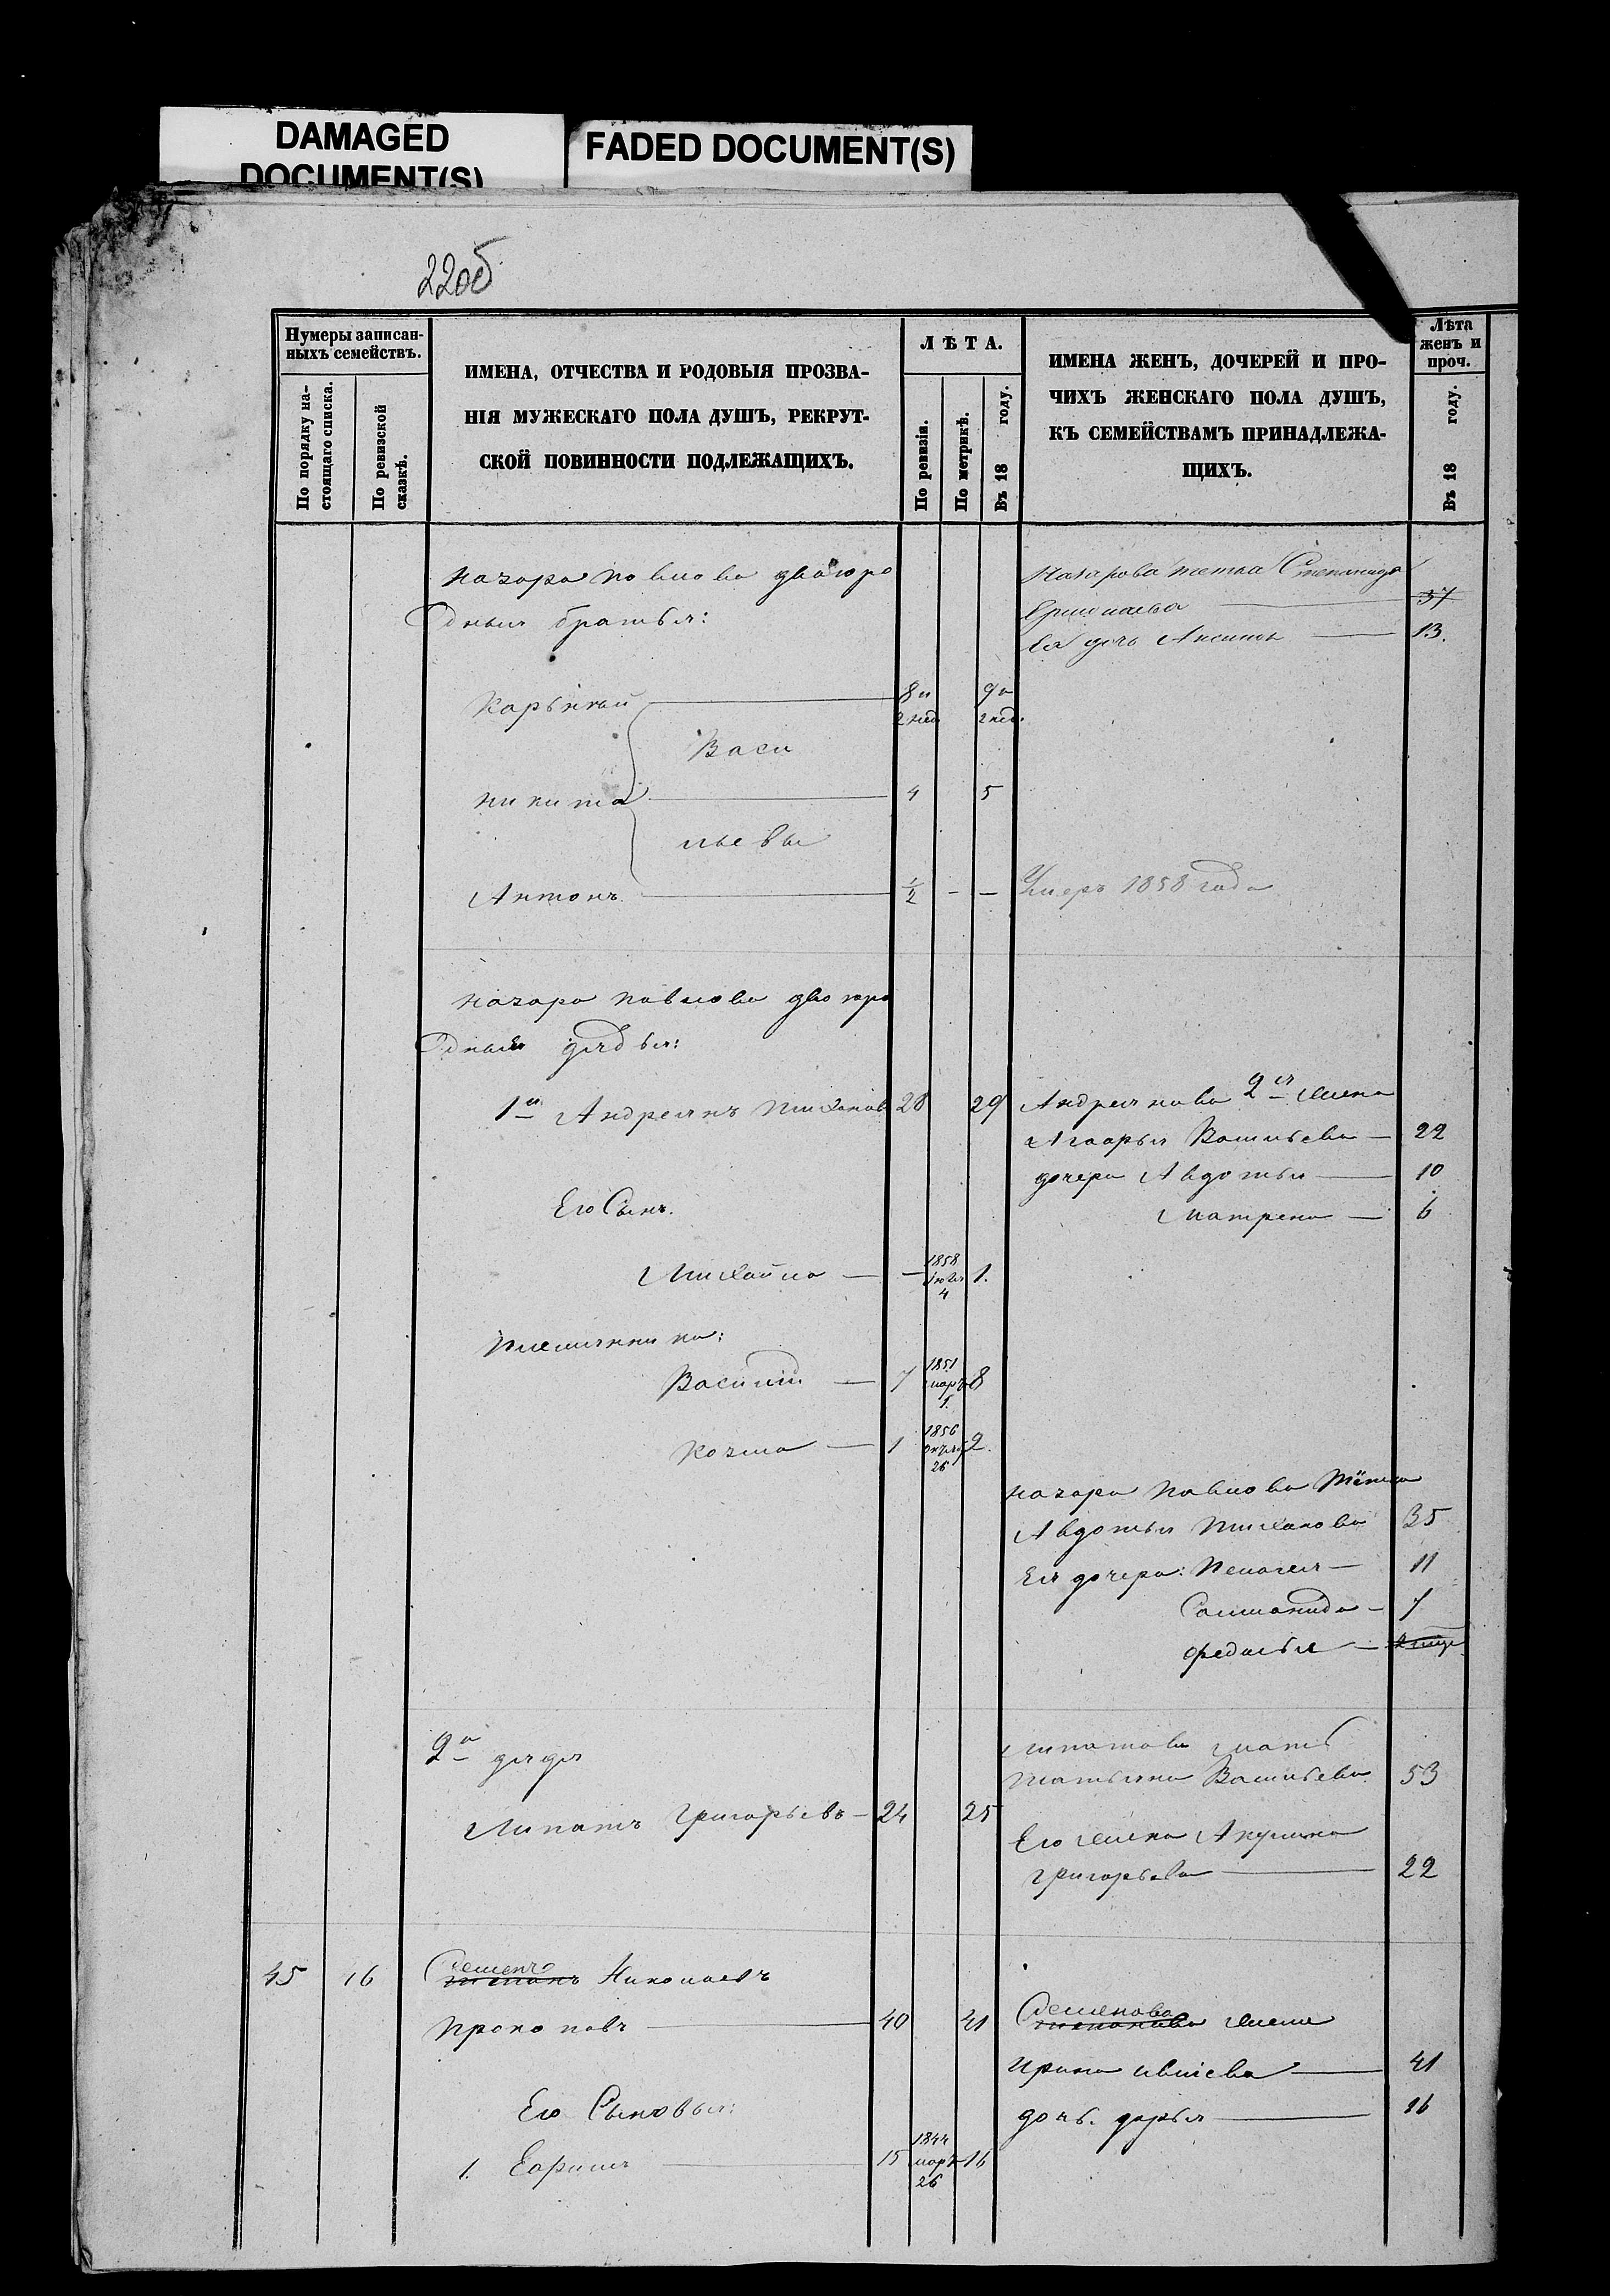 DAMAGED
DOCUMENT(S)
FADED DOCUMENT(S)
22об
Нумеры записан-
ныхъ семействъ.
По порядку на-
стоящаго списка.
По ревизской
сказкѣ.
ИМЕНА, ОТЧЕСТВА И РОДОВЫЯ ПРОЗВА-
НІЯ МУЖЕСКАГО ПОЛА ДУШЪ, РЕКРУТ-
СКОЙ ПОВИННОСТИ ПОДЛЕЖАЩИХЪ.
ЛѢТА.
По ревизіи.
По метрикѣ.
Въ 18 году.
ИМЕНА ЖЕНЪ, ДОЧЕРЕЙ И ПРО-
ЧИХЪ ЖЕНСКАГО ПОЛА ДУШЪ,
КЪ СЕМЕЙСТВАМЪ ПРИНАДЛЕЖА-
ЩИХЪ.
Лѣта
женъ и
проч.
Въ 18 году.
назара павлова двоюро
дныя братья:
Назарова тетка Степанида
37
Ея дочь Аксинья 13.
8 и 9 и
2 нед. 2 нед.
Васи
никита 4 5
льевы
Антонъ 1/2 - - Умеръ 1858 года
назара павлова двоюро
дныя дядья:
1й Андреянъ Тихонов 28 29 Андреянова 2я жена
Васильева 22
дочери Авдотья 10
Его Сынъ.
матрена 6
Михайла — 1858 4 1.
племянники:
Василий 7 1851 мар. 1. 8
Козма 1 1856 26 2.
назара павлова тётка
Авдотья Тиханова 35
Ея дочери: Пелагея 11
Саламанида 7
федосья
2й дядя
Липатова мать
Татьяна Васильева 53
Липатъ Григорьевъ 24 25
Его жена Акулина
григорьева 22
45 16 Семенъ Николаевъ
прокопавъ 40 41 Семенова жена
ирина 41
Его Сыновья:
дочь дарья 16
1. Ефимъ 15 1844 мар 26 16